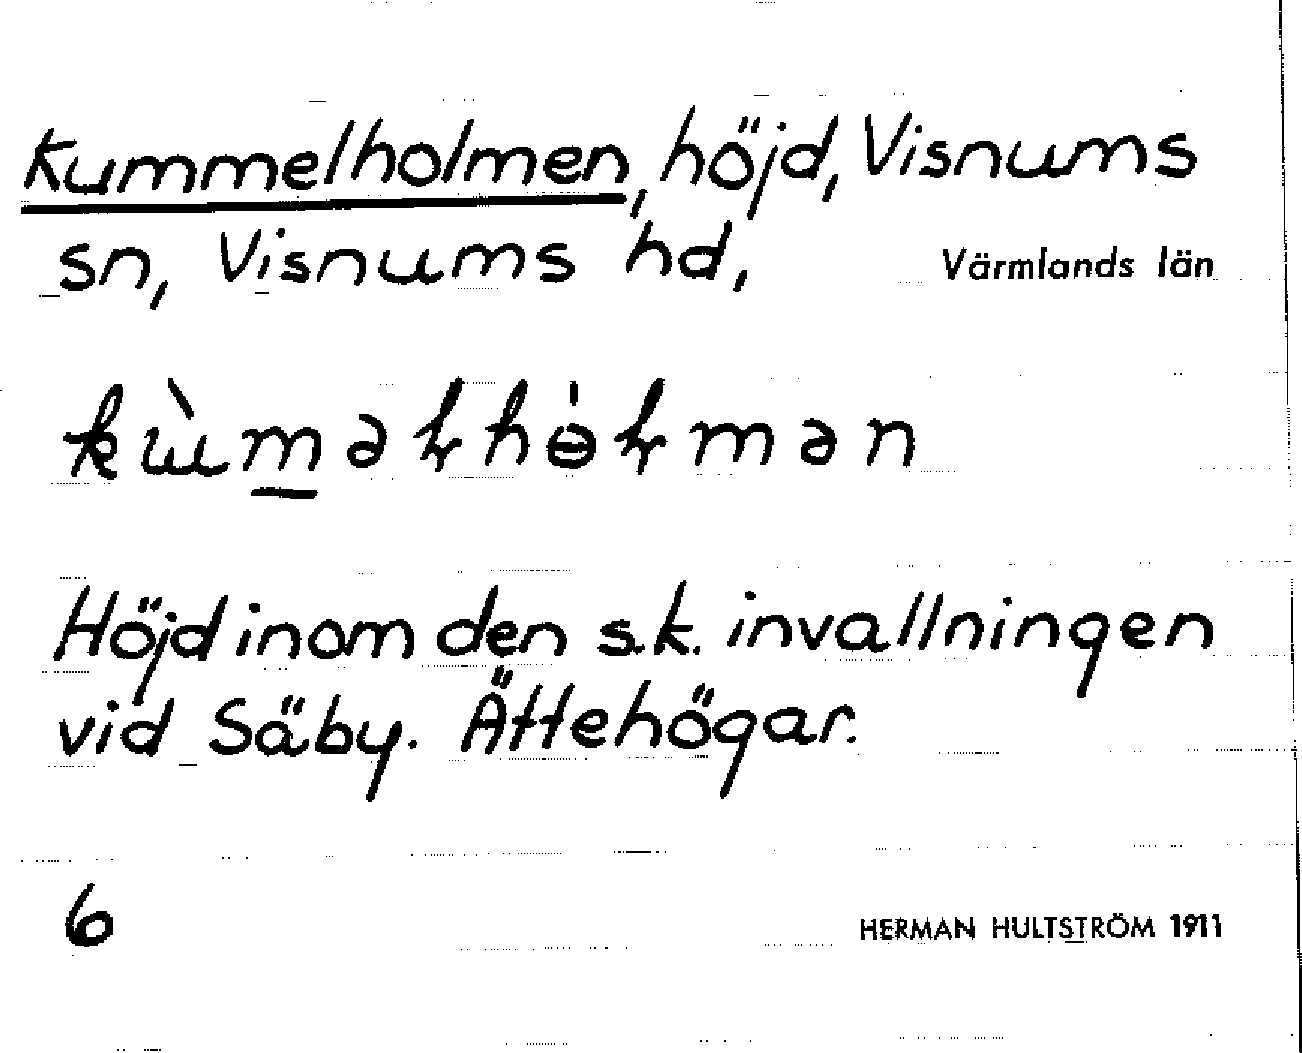 Kummelholmen, höjd, Visnums
sn, Visnums hd, Värmlands län
Höjd inom den s.k. invallningen
vid Säby. Ättehögar.
6
HERMAN HULTSTRÖM 1911